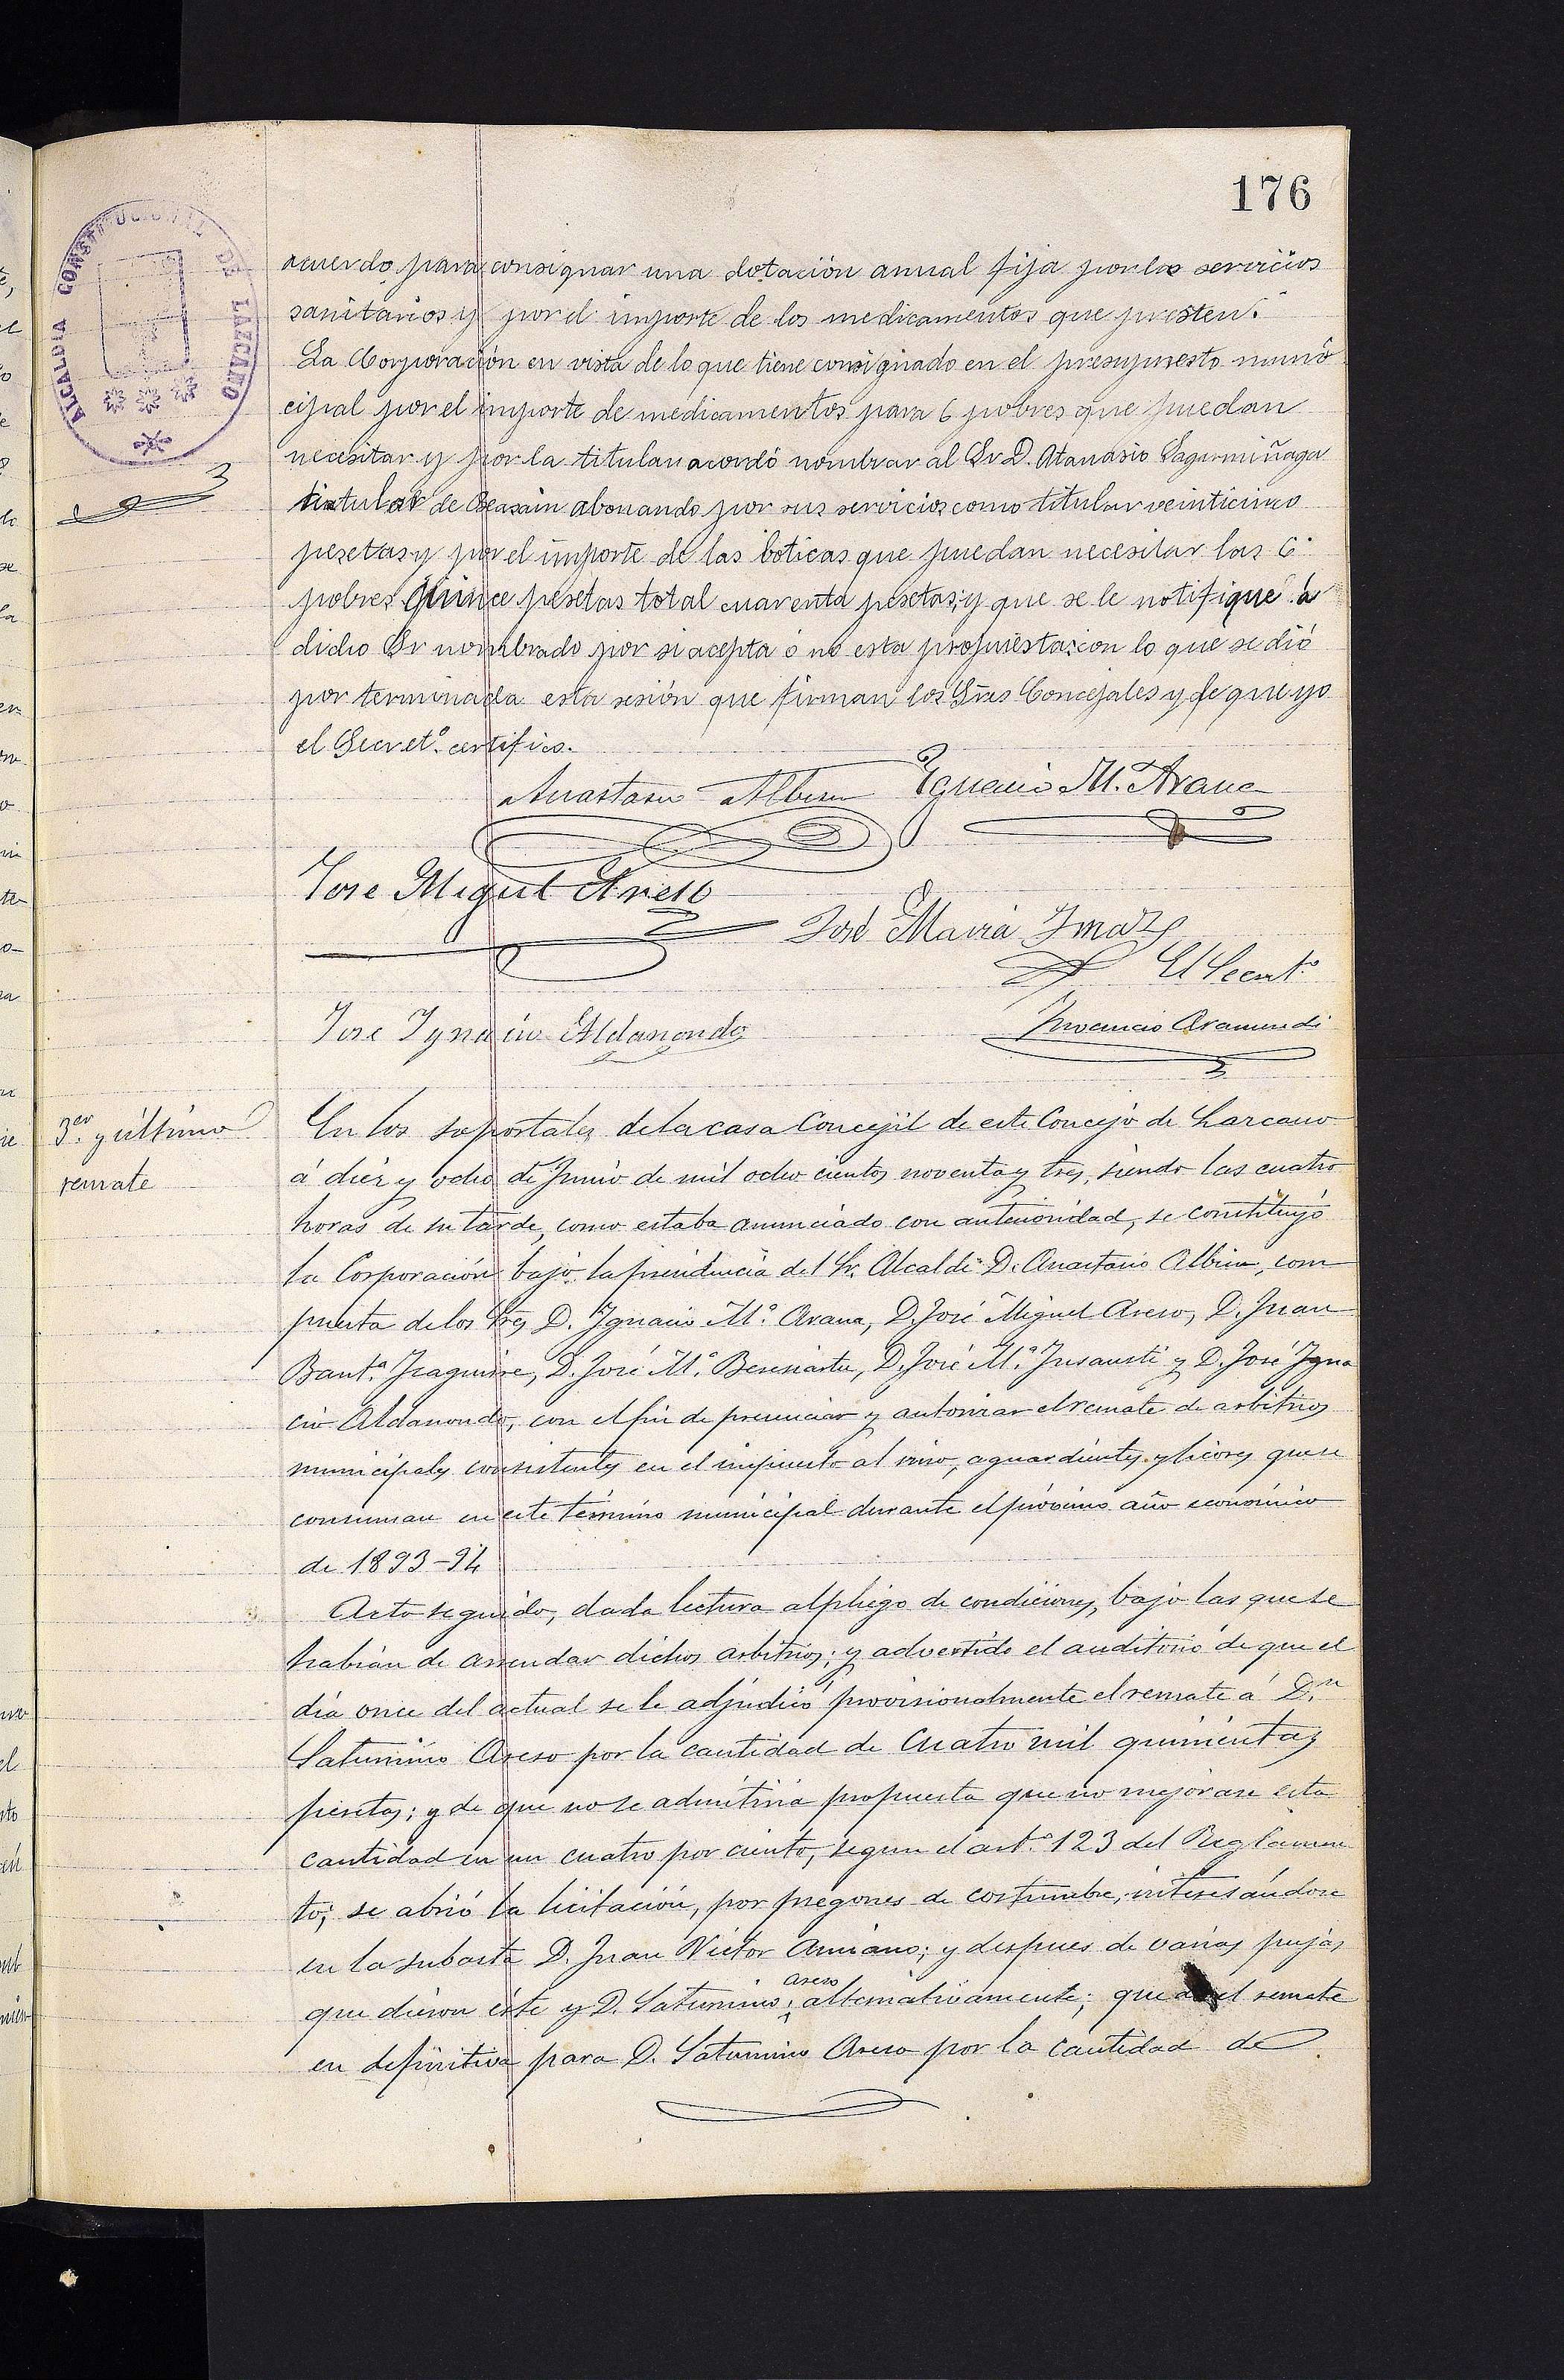 176
ALCALDIA CONSTITUCIONAL DE LAZCANO
acuerdo para consignar una dotación anual fija por los servicios
sanitarios y por el importe de los medicamentos que presten.
La Corporación en vista de lo que tiene consignado en el presupuesto muni
cipal por el importe de medicamentos para 6 pobres que puedan
necesitar y por la titular acordó nombrar al Sr D. Atanasio Sagarmiñaga
titular de Beasain abonando por sus servicios como titular veinticinco
pesetas y por el importe de las boticas que puedan necesitar los 6
pobres quince pesetas total cuarenta pesetas; y que se le notifique á
dicho Sr nombrado por si acepta ó no esta propuesta: con lo que se dió
por terminada esta sesión que firman los Sres Concejales y de que yo
el Secret.º certifico.
Anastasio Albisu Ygnacio M. Arana
Jose Miguel Areso
José Maria Imaz
El Secret.º
Jose Ygnacio Aldanondo
Inocencio Aramendi
3.er y último
remate
En los soportales de la casa Concejil de este Concejo de Lazcano
á diez y ocho de Junio de mil ocho cientos noventa y tres, siendo las cuatro
horas de su tarde, como estaba anunciado con anterioridad, se constituyó
la Corporación bajo la presidencia del Sr. Alcalde D. Anastasio Albisu, com
puesta de los Sres D. Ygnacio M.ª Arana, D. José Miguel Areso, D. Juan
Baut.ª Yraguirre, D. José M.ª Beresiartu, D. José M.ª Insausti y D. José Ygna
cio Aldanondo, con el fin de presenciar y autorizar el remate de arbitrios
municipales consistentes en el impuesto al vino, aguardientes y licores que se
consuman en este término municipal durante el próximo año económico
de 1893-94
Acto seguido, dada lectura al pliego de condiciones, bajo las que se
habían de arrendar dichos arbitrios; y advertido el auditorio de que el
día once del actual se le adjudicó provisionalmente el remate á D.n
Saturnino Areso por la cantidad de Cuatro mil quinientas
pesetas; y de que no se admitiría propuesta que no mejorase esta
cantidad en un cuatro por ciento, segun el art.º 123 del Reglamen
to; se abrió la licitación, por pregones de costumbre, interesándose
en la subasta D. Juan Victor Amiano; y despues de varias pujas
que dieron éste y D. Saturnino Areso, alternativamente; quedó el remate
en definitiva para D. Saturnino Areso por la cantidad de